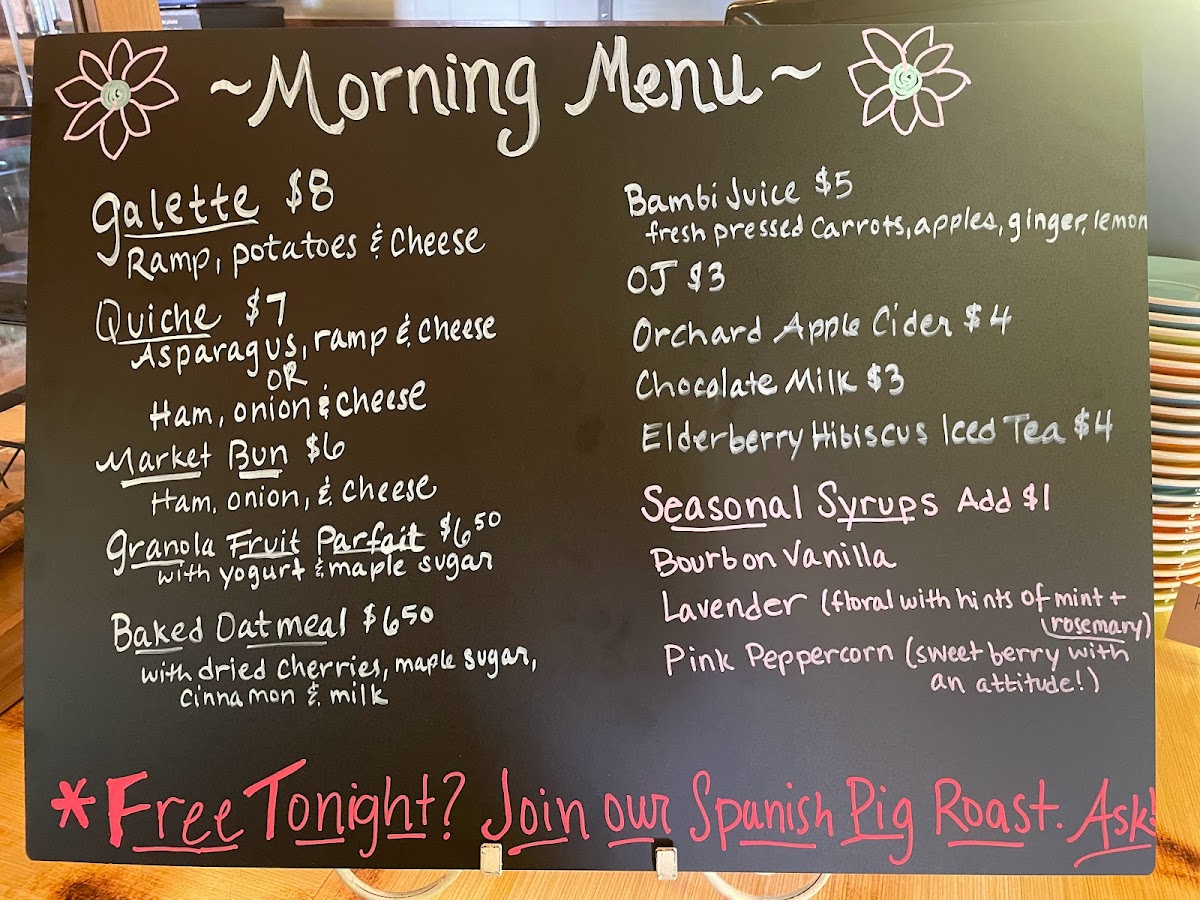 ~Morning Menu~
Galette $8
Ramp, potatoes & Cheese
Quiche $7
Asparagus, ramp & Cheese
OR
Ham, onion & cheese
Market Bun $6
Ham, onion, & cheese
Granola Fruit Parfait $6.50
with yogurt & maple sugar
Baked Oatmeal $6.50
with dried cherries, maple sugar,
Cinnamon & milk
Bambi Juice $5
fresh pressed carrots, apples, ginger, lemon
OJ $3
Orchard Apple Cider $4
Chocolate Milk $3
Elderberry Hibiscus Iced Tea $4
Seasonal Syrups Add $1
Bourbon Vanilla
Lavender (floral with hints of mint +
rosemary)
Pink Peppercorn (sweet berry with
an attitude!)
*Free Tonight? Join our Spanish Pig Roast. Ask!